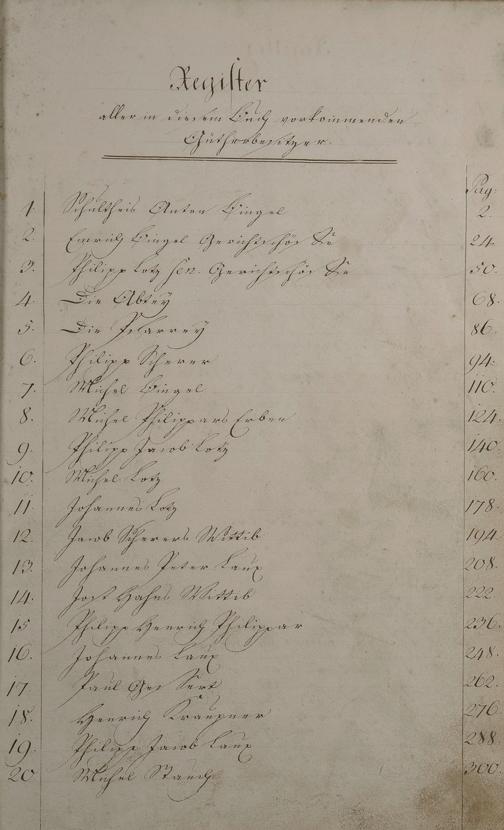 Register
aller in diesem Buch vorkommenden
Gütherbesitzer.
Pag:
1. Schultheis Anton Bingel 2.
2. Emrich Bingel Gerichtschös Se 24.
3. Philipp Lotz sen. Gerichtschös Se 50.
4. Die Abtey 68.
5. Die Pfarrey 86.
6. Philipp Scherer 94.
7. Michel Bingel 110.
8. Michel Philippars Erben 124.
9. Philipp Jacob Lotz 140.
10. Michel Lotz 160.
11. Johannes Lotz 178.
12. Jacob Scherers Wittib 194.
13. Johannes Peter Laux 208.
14. Jost Hahns Wittib 222.
15 Philipp Henrich Philippar 236.
16. Johannes Laux 248.
17 Paul 262.
18. Henrich Kraupner 276.
19. Philipp Jacob Laux 288.
20 Michel Stauch 300.